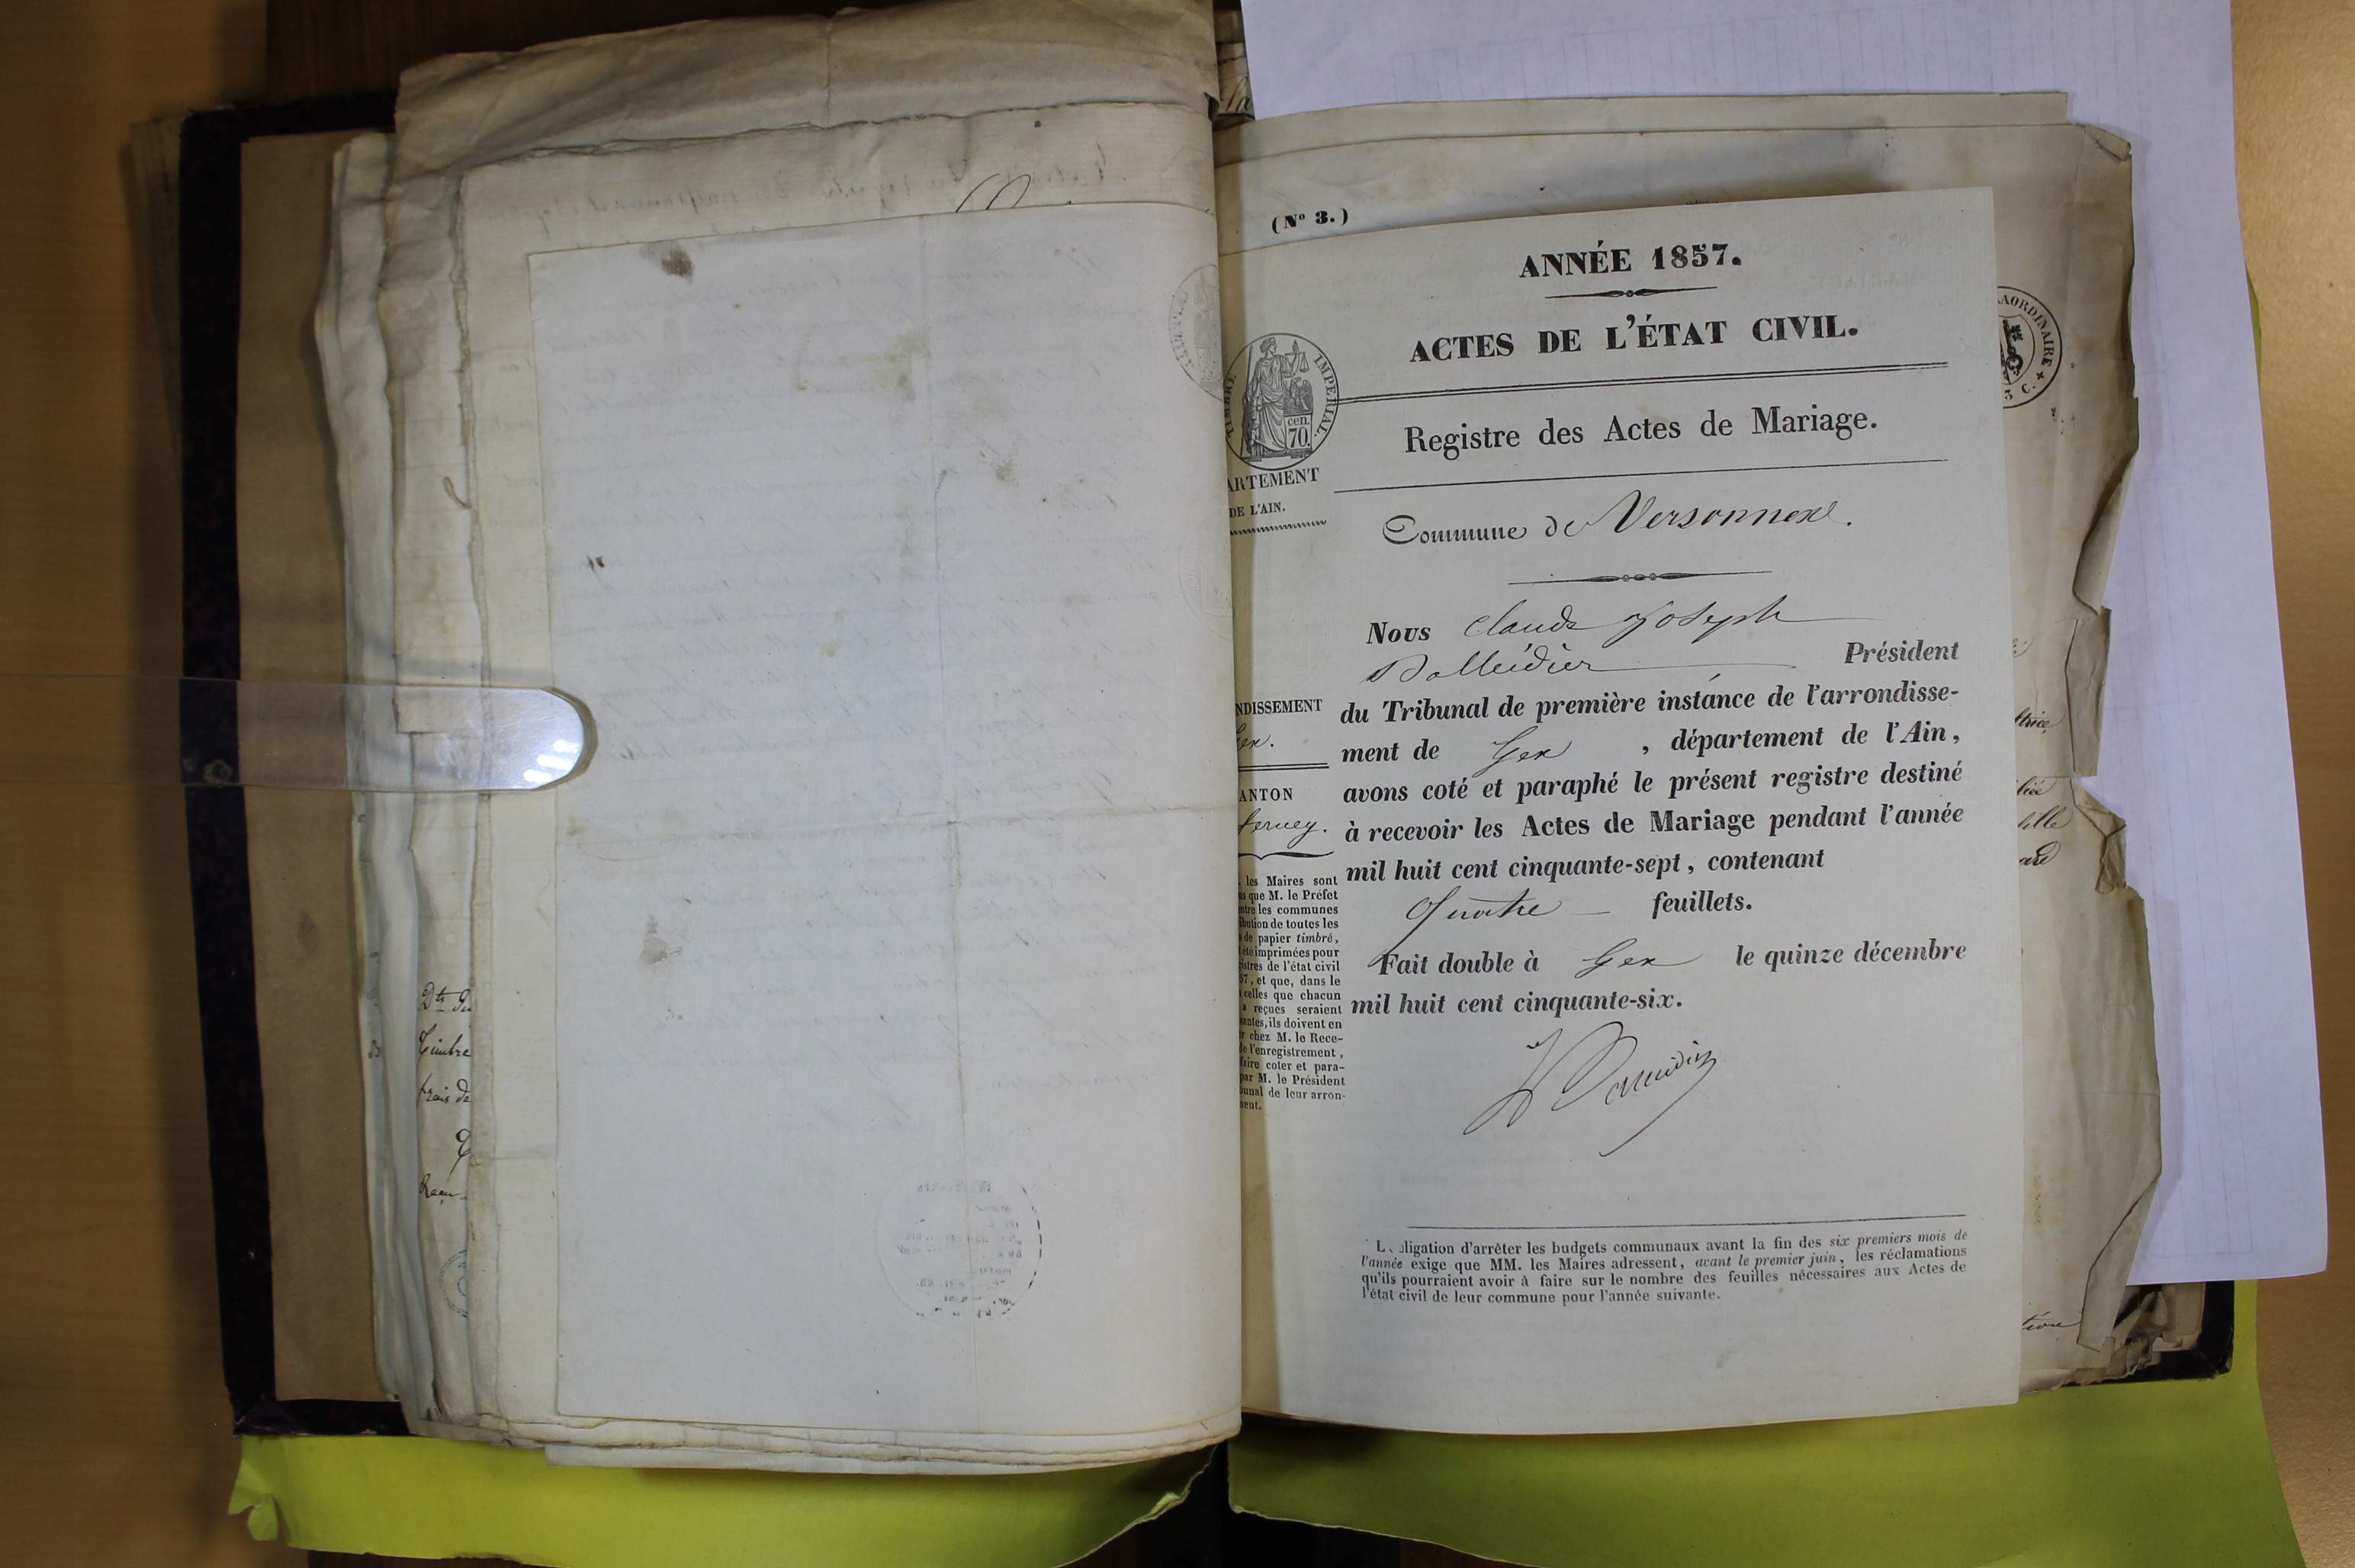 (Nº 3.)
ANNÉE 1857.
ACTES DE L'ÉTAT CIVIL.
TIMBRE IMPÉRIAL.
cen.
70.
Registre des Actes de Mariage.
ARTEMENT
DE L'AIN.
Commune de Versonnex.
Nous Claude Joseph
Président
du Tribunal de première instance de l'arrondisse-
ment de Gex , département de l'Ain,
avons coté et paraphé le présent registre destiné
à recevoir les Actes de Mariage pendant l'année
mil huit cent cinquante-sept, contenant
Quatre — feuillets.
Fait double à Gex le quinze décembre
mil huit cent cinquante-six.
NDISSEMENT
Gex.
ANTON
Ferney.
les Maires sont
que M. le Préfet
les communes
bution de toutes les
de papier timbré,
été imprimées pour
istres de l'état civil
57, et que, dans le
celles que chacun
reçues seraient
santes, ils doivent en
chez M. le Rece-
de l'enregistrement,
faire coter et para-
par M. le Président
bunal de leur arron-
ment.
L ligation d'arrêter les budgets communaux avant la fin des six premiers mois de
l'année exige que MM. les Maires adressent, avant le premier juin, les réclamations
qu'ils pourraient avoir à faire sur le nombre des feuilles nécessaires aux Actes de
l'état civil de leur commune pour l'année suivante.
AORDINAIRE
Timbre
frais de